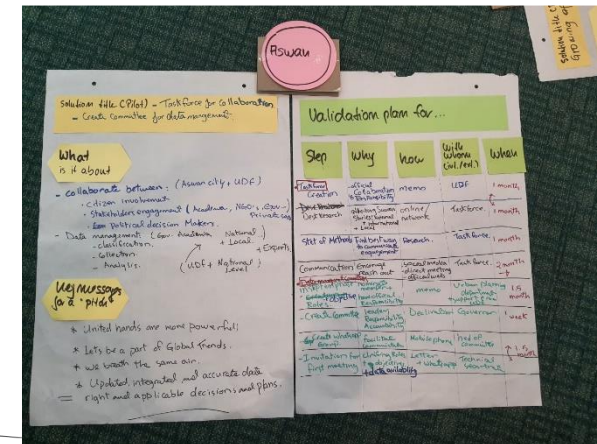 Aswan
Solution title (Pilot) - Taskforce for collaboration
- Create committee for data mangement
What
is it about
- collaborate between: (Aswan city, UDF)
- citizen involvement
- Stakeholders engagement (Academia, NGO's, Gov -
Private sec
- Political decision Makers.
- Data management (Gov. Academia National
+ Local + Experts
- classification.
- Collection.
- Analysis.
(UDF + National
Level)
Key messages
for a "pitch"
* United hands are more powerful
* Lets be a part of Global Trends.
* we breath the same air.
* Updated, integrated and accurate data
= right and applicable decisions and plans.
Validation plan for...
Step
Why
how
With
whom
(int./ext.)
When
Taskforce
Creation
official
Colaboration
Responsibility
memo
UDF
1 month
Desk research
online/
network
Taskforce.
1 month
Find best way
to communicate
engagement
Research.
Task force.
1 month
Communication
Encourage
reach out
direct meeting
Task force.
2 month
Roles.
Responsibility
memo
Urban planning
department
1.5
month
- Create Committe
Responsibility
Accountability
Governor
1 week
Create whatsapp
Group
Facilitate
Mobile phone
committe
- Invitation for
first meeting
Letter
+ whatsapp
Technical
1.5
month
+ data availability
Solution title